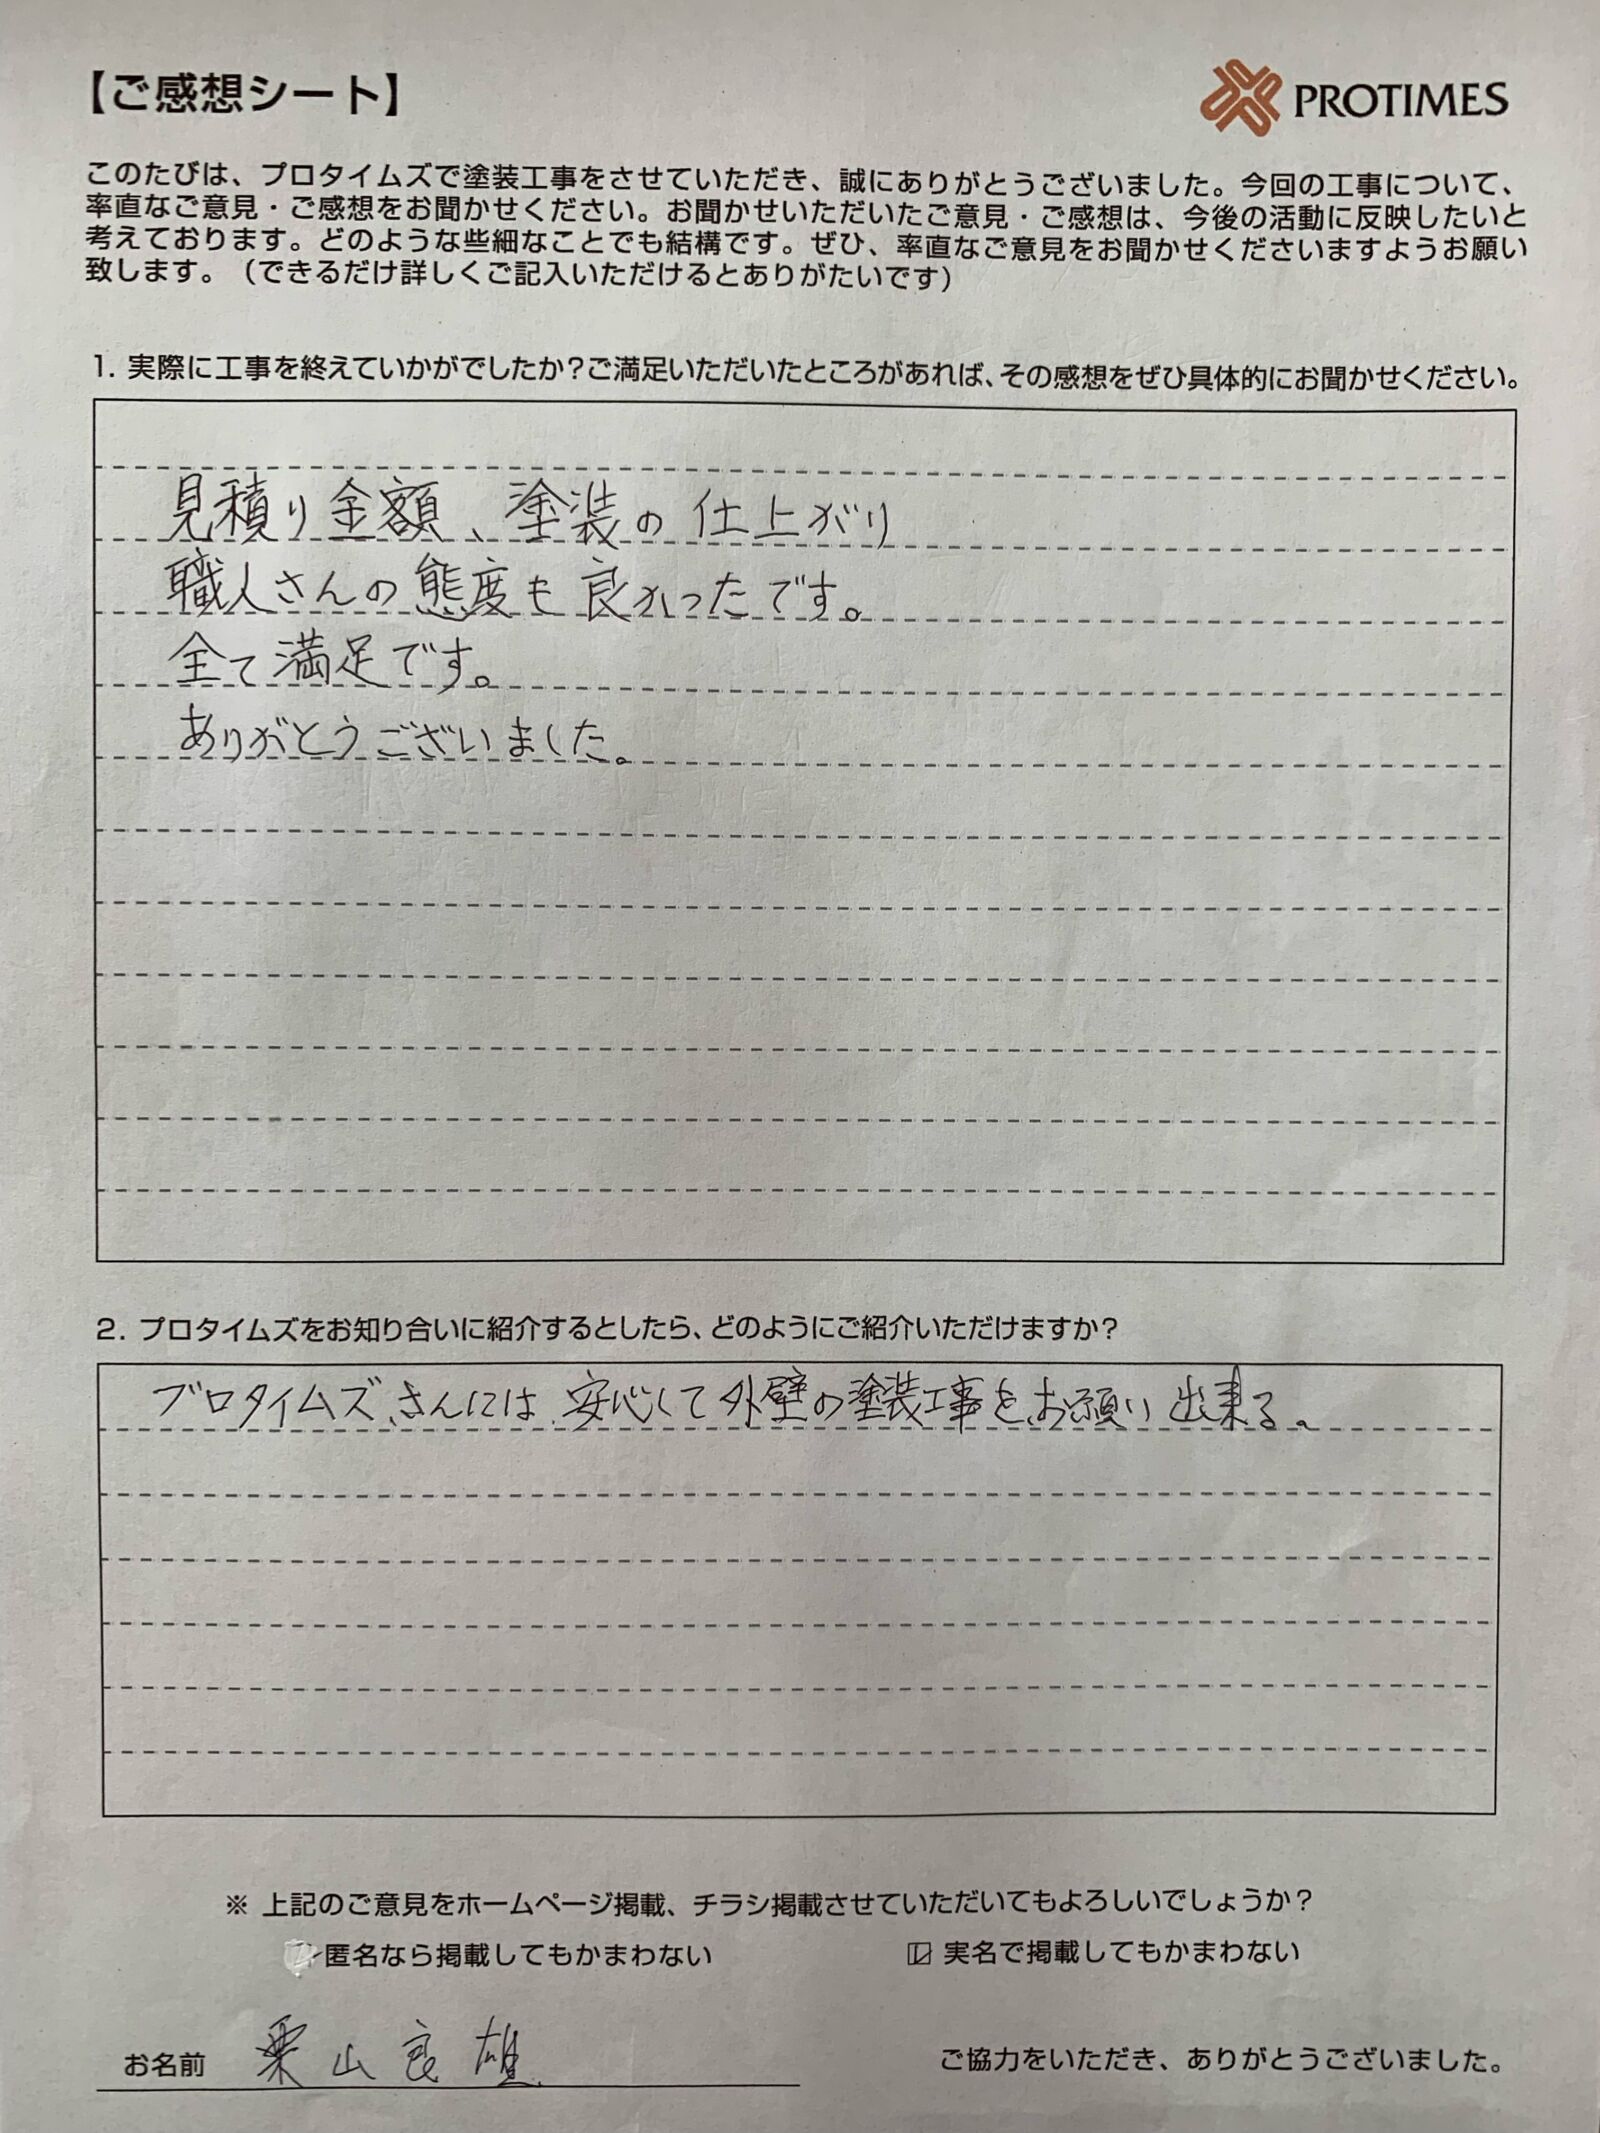 【ご感想シート】
PROTIMES
このたびは、プロタイムズで塗装工事をさせていただき、誠にありがとうございました。今回の工事について、
率直なご意見・ご感想をお聞かせください。お聞かせいただいたご意見・ご感想は、今後の活動に反映したいと
考えております。どのような些細なことでも結構です。ぜひ、率直なご意見をお聞かせくださいますようお願い
致します。（できるだけ詳しくご記入いただけるとありがたいです）
1. 実際に工事を終えていかがでしたか？ご満足いただいたところがあれば、その感想をぜひ具体的にお聞かせください。
見積り金額、塗装の仕上がり
職人さんの態度も良かったです。
全て満足です。
ありがとうございました。
2. プロタイムズをお知り合いに紹介するとしたら、どのようにご紹介いただけますか？
プロタイムズさんには、安心して外壁の塗装工事をお願い出来る。
※ 上記のご意見をホームページ掲載、チラシ掲載させていただいてもよろしいでしょうか？
匿名なら掲載してもかまわない ☑ 実名で掲載してもかまわない
お名前 栗山良雄
ご協力をいただき、ありがとうございました。